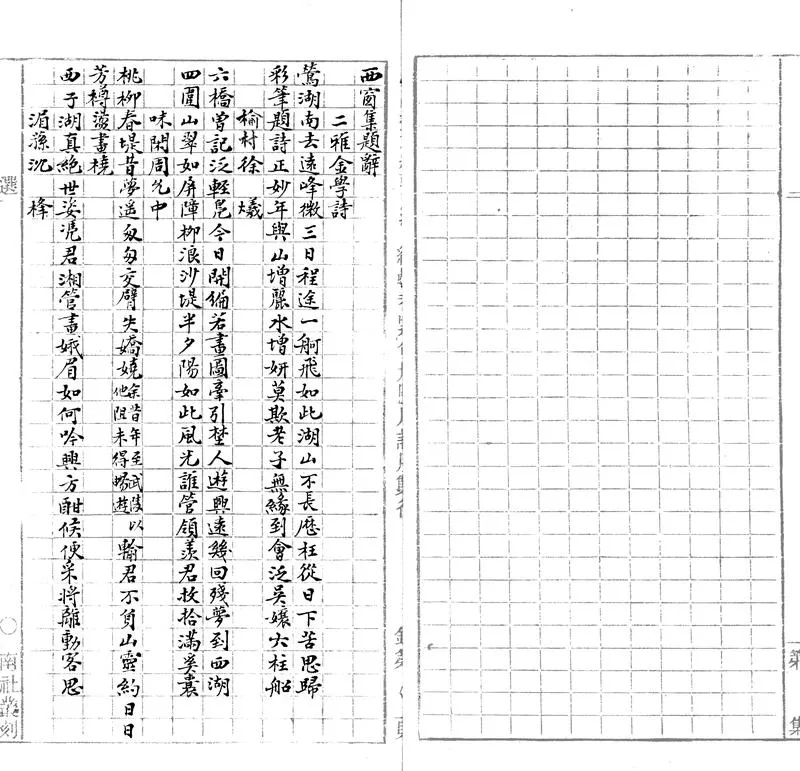 西窗集題辭
二雅金學詩
鶯湖南去遠峰微三日程途一舸飛如此湖山不長歷枉從日下苦思歸
彩筆題詩正妙年與山增麗水增妍莫欺老子無緣到會泛吳孃六柱船
榆村徐爔
六橋曾記泛輕鳧今日開編若畫圖牽引埜人遊興遠幾回殘夢到西湖
四圍山翠如屏障柳浪沙堤半夕陽如此風光誰管領羨君收拾滿奚囊
味閑周允中
桃柳春堤昔夢遥匆匆交臂失嬌嬈余昔年至武陵以他阻未得暢遊輸君不負山靈約日日
芳樽盪畫橈
西子湖真絕世姿凴君湘管畫娥眉如何吟興方酣候便采將離動客思
湄蓀沈 㭐
選
南社叢刻
第 集